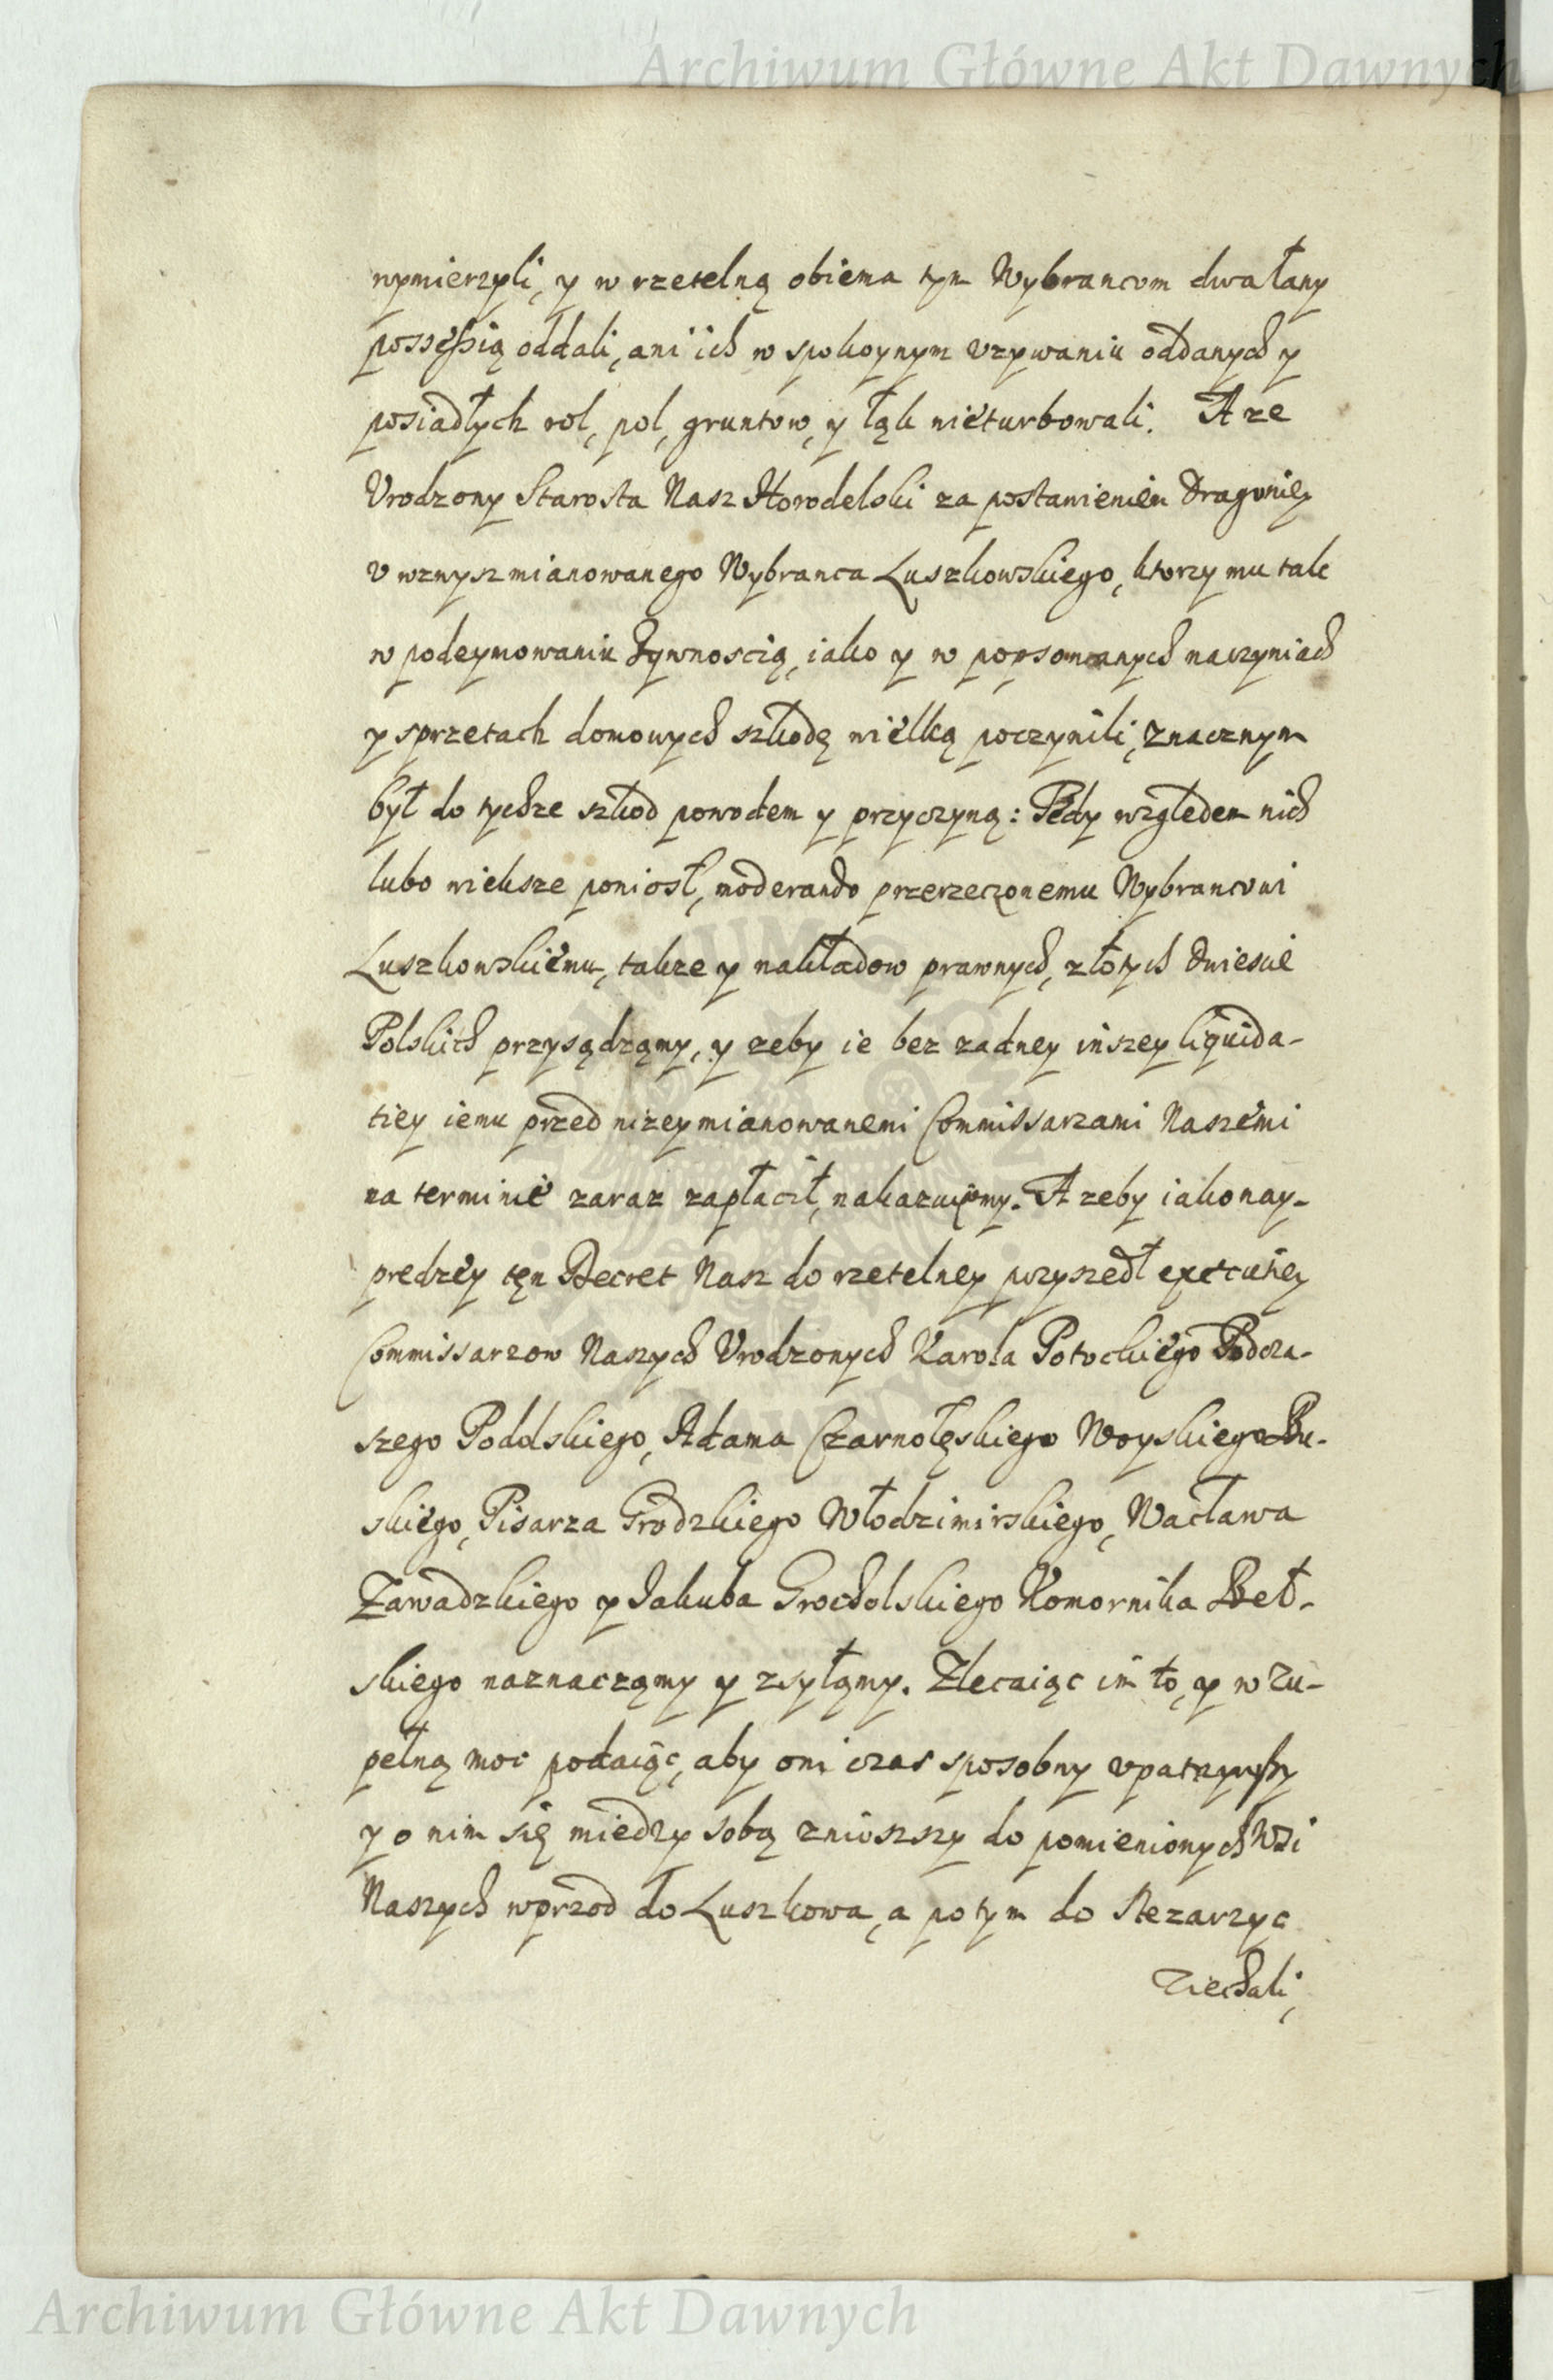 Archiwum Główne Akt Dawnych
wymierzyli, y w rzetelną obiema tym Wybrancom dwa łany
possessią oddali, ani ich w spokoynym vzywaniu oddanych y
posiadłych rol, pol, gruntow, y łąk nieturbowali. A ze
Vrodzony Starosta Nasz Horodelski za postawieniem Dragoniey
v wzwysz mianowanego Wybranca Luszkowskiego, ktorzy mu tak
w podeymowaniu żywnoscią, iako y w popsowanych naczyniach
y sprzetach domowych szkodę wielką poczynili, znacznym
był do tychze szkod powodem y przyczyną: Tedy względem nich
lubo wieksze poniosł, moderando przerzeczonemu Wybrancowi
Luszkowskiemu, takze y nakładow prawnych, złotych dwiescie
Polskich przysądzamy, y zeby ie bez zadney inszey liquida-
tiey iemu przed nizey mianowanemi Commissarzami Naszemi
na terminie zaraz zapłacił, nakazuiemy. A zeby iako nay-
predzey ten Decret Nasz do rzetelney przyszedł executiey
Commissarzow Naszych Vrodzonych Karola Potockiego Podcza-
szego Podolskiego, Adama Czarnołęskiego Woyskiego Bu-
skiego, Pisarza Grodzkiego Włodzimirskiego, Wacława
Zawadzkiego y Jakuba Grocholskiego Komornika Beł-
skiego naznaczamy y zsyłamy. Zlecaiąc im to, y w zu-
pełną moc podaiąc, aby oni czas sposobny vpatrzywszy
y o nim się miedzy sobą zniosszy do pomienionych Wsi
Naszych wprzod do Luszkowa, a potym do Stezarzyc
ziechali,
Archiwum Główne Akt Dawnych